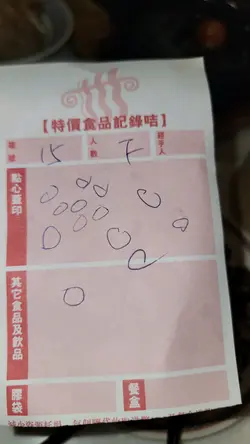 【特價食品記錄咭】
檯號 15 人數 7 經手人
點心蓋印
其它食品及飲品
膠袋 餐盒